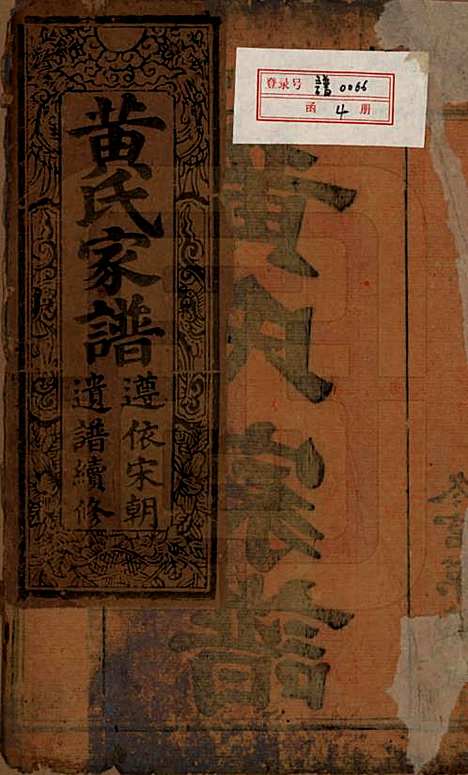 登录号 譜 0066
函 4 册
黄氏家譜
遵依宋朝
遺譜續修
黄氏家譜